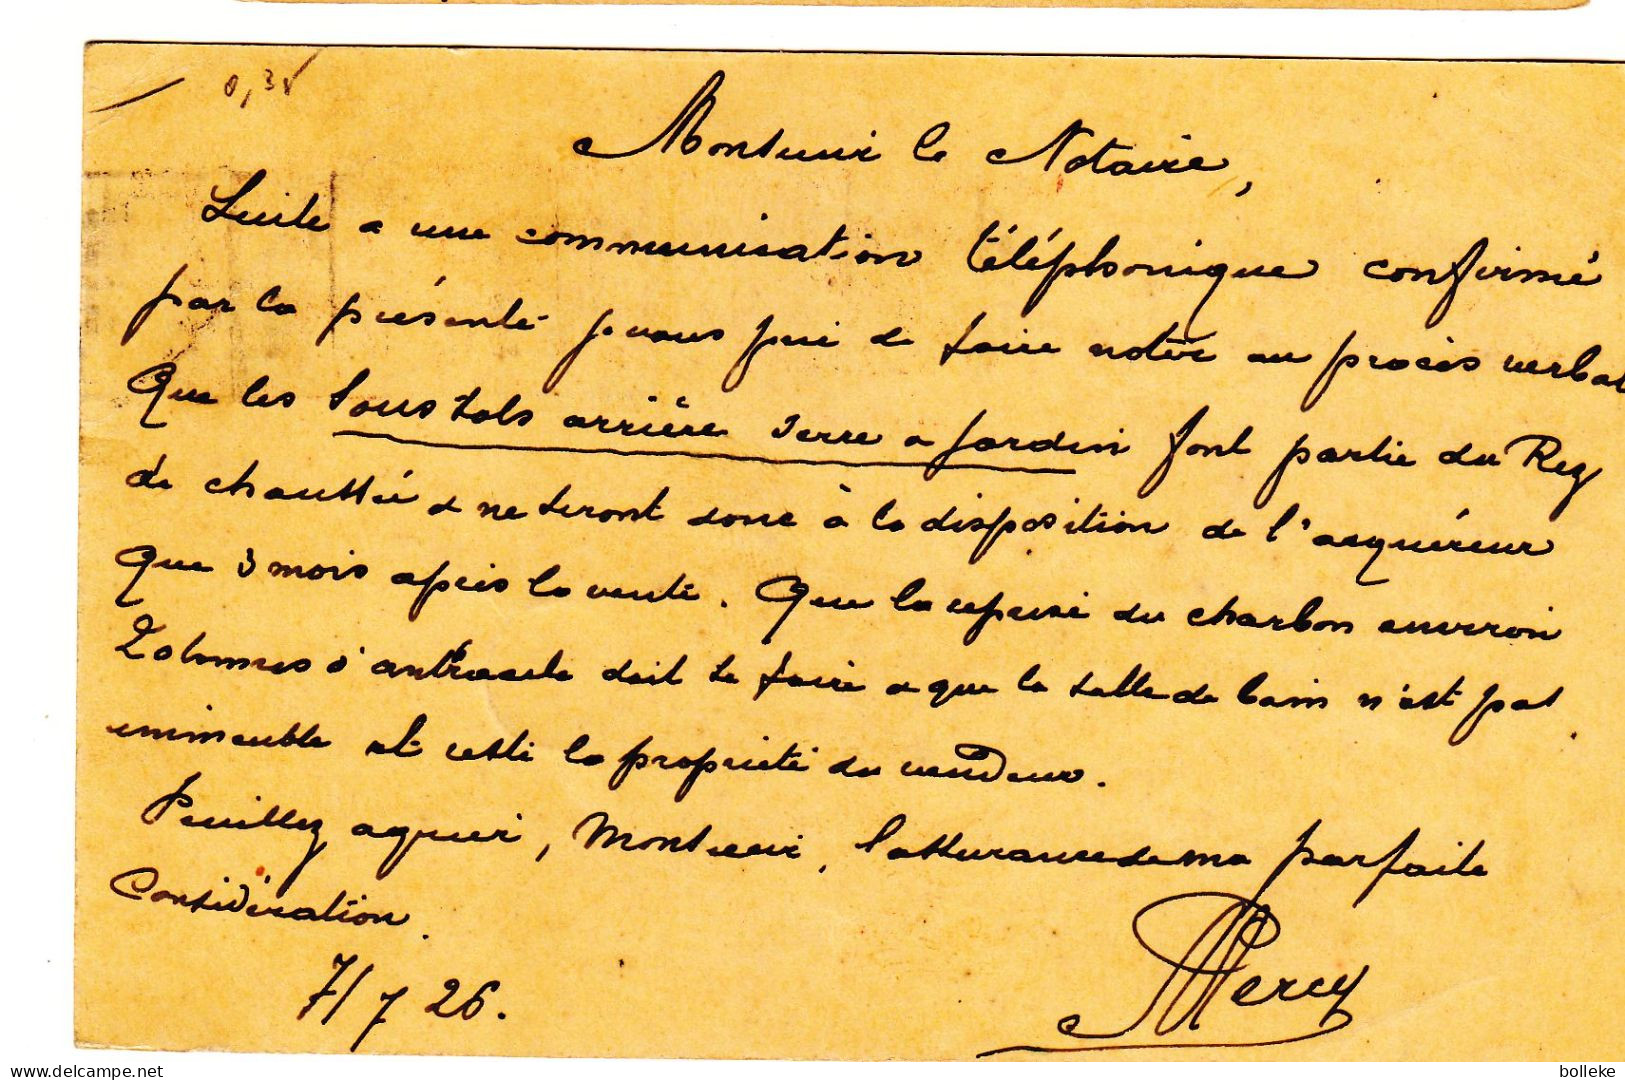 0,35
Monsieur le Notaire,
Suite a une communication téléphonique confirmé
par la présente je vous prie de faire noter au procès verbal
Que les Sous sols arrière serre a jardin font partie du Rez
de chaussée & ne seront donc à la disposition de l'acquéreur
que 3 mois après la vente. Que la reprise du charbon environ
2 tonnes d'antracite doit se faire & que la salle de bain n'est pas
immeuble et reste la propriété du vendeur.
Veuillez agréer, Monsieur, l'assurance de ma parfaite
Considération.
7/7 26.
Mercy
bolleke